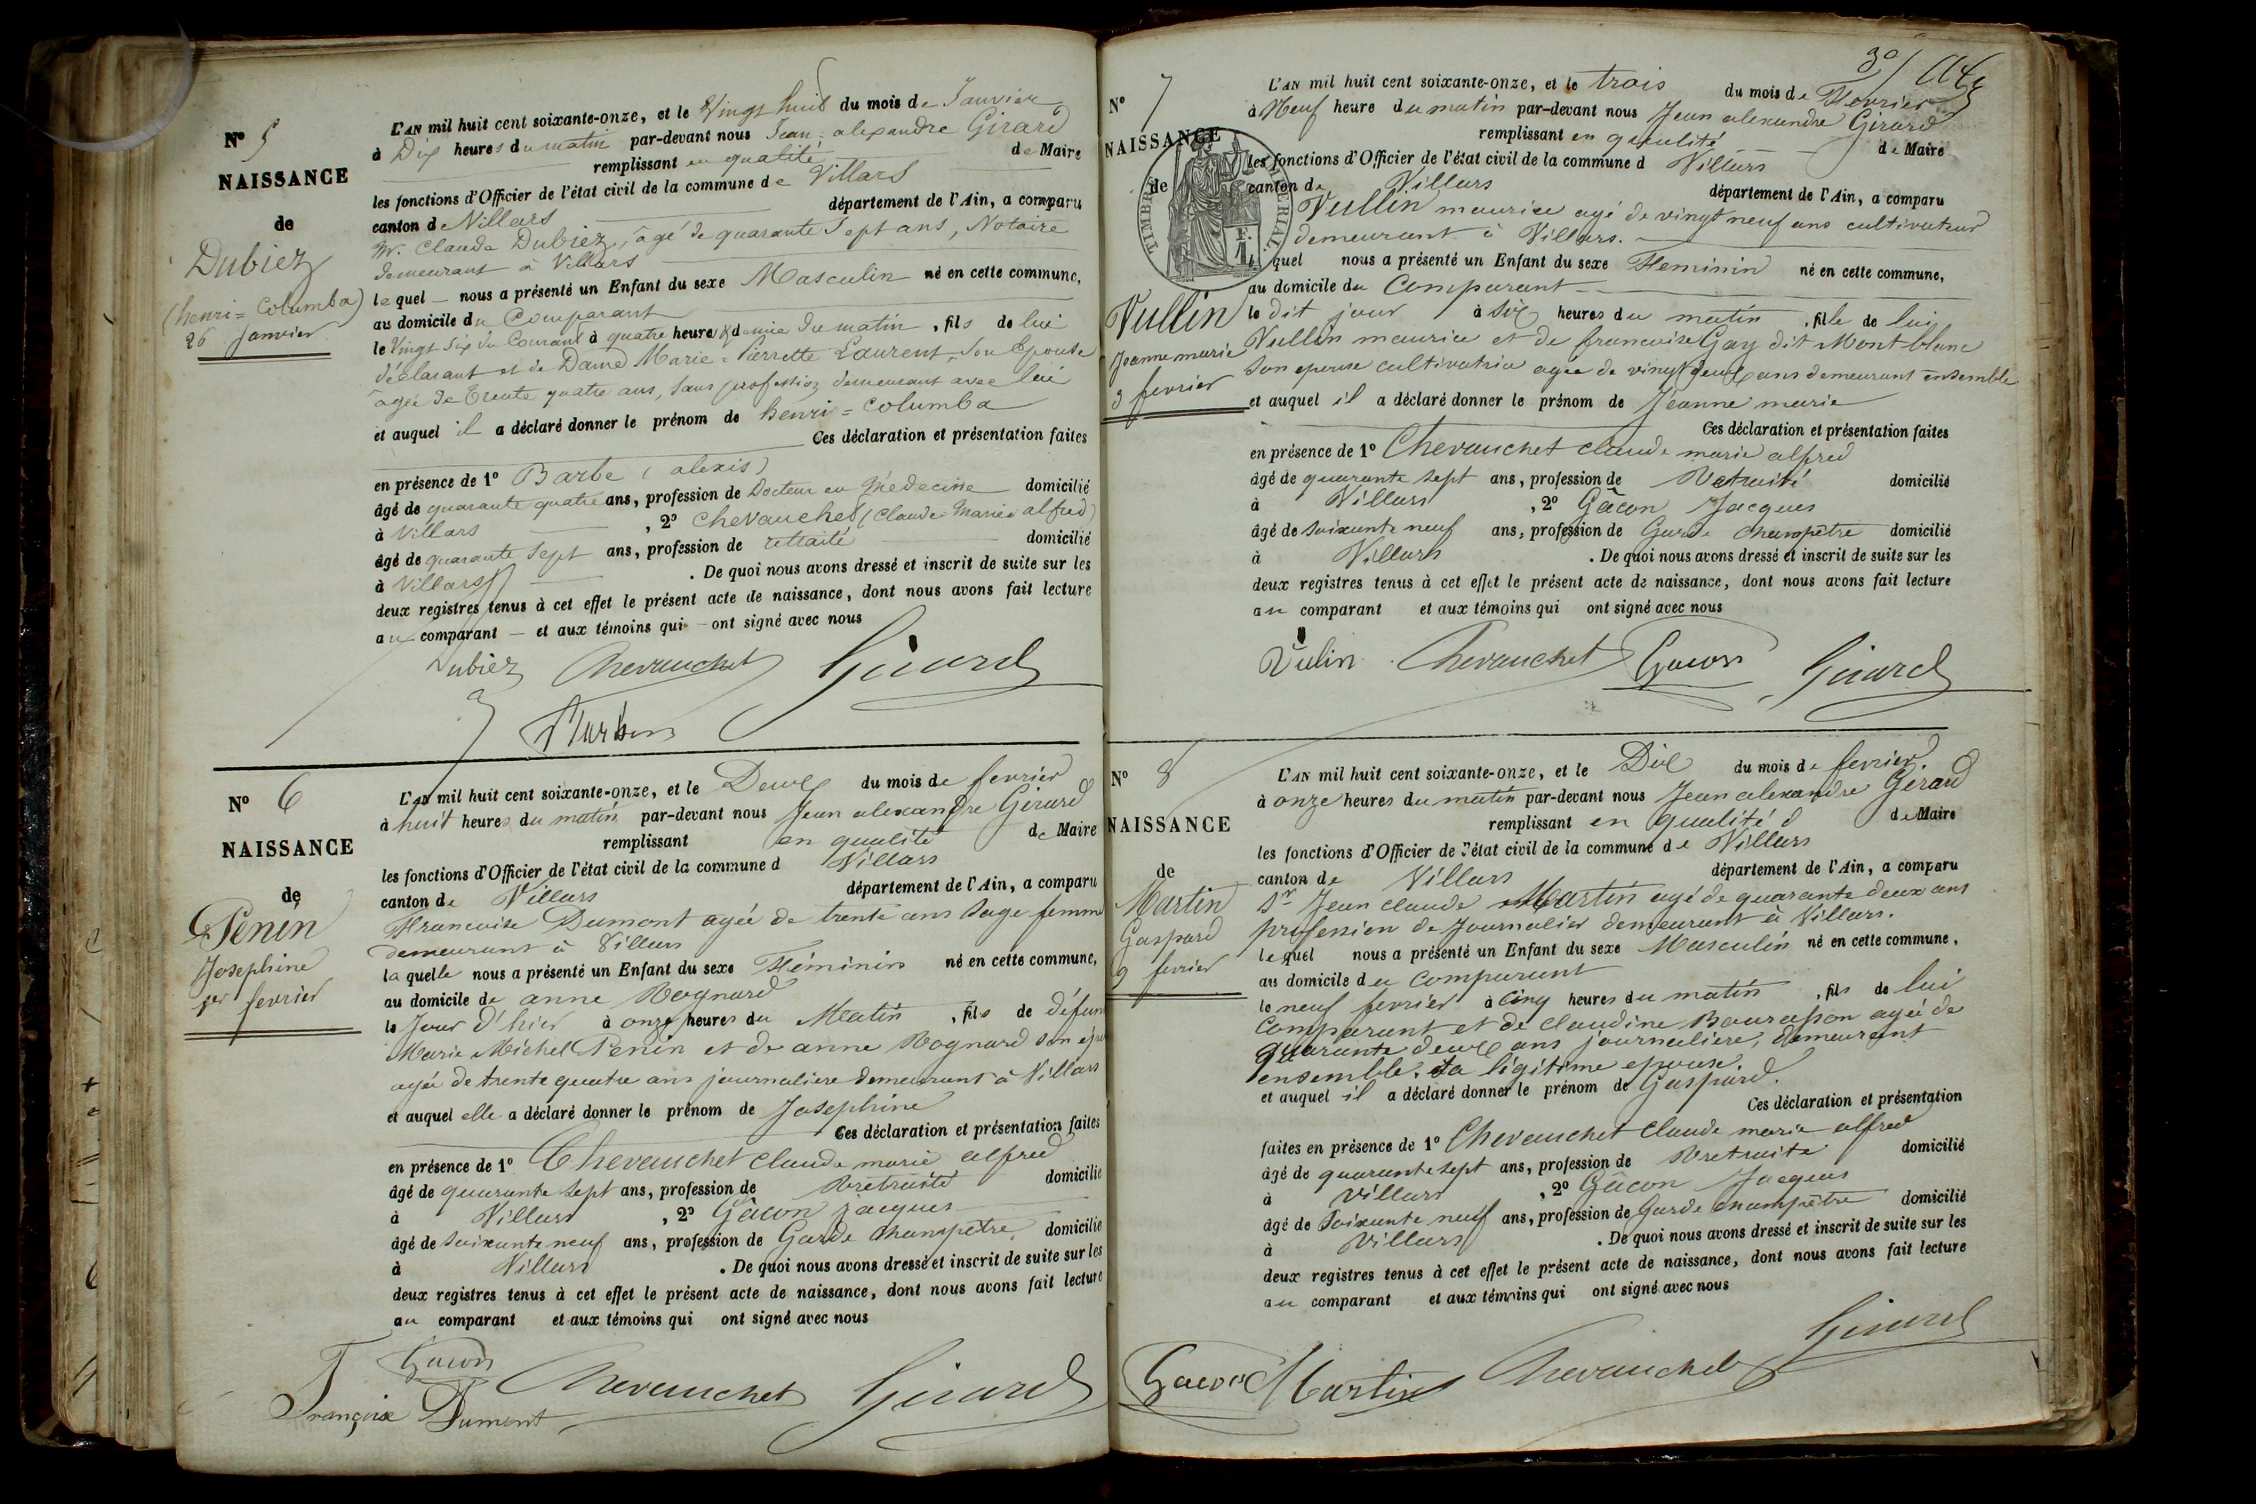 N° 5
NAISSANCE
de
Dubiez
(henri = Columba)
26 Janvier
L'AN mil huit cent soixante-onze, et le Vingt huit du mois de Janvier
à Dix heures du matin par-devant nous Jean = alexandre Girard
remplissant en qualité de Maire
les fonctions d'Officier de l'état civil de la commune de Villars
canton de Villars département de l'Ain, a comparu
Mr. Claude Dubiez, âgé de quarante Sept ans, Notaire
demeurant à Villars
lequel nous a présenté un Enfant du sexe Masculin né en cette commune,
au domicile du Comparant
le Vingt Six du Courant à quatre heures & demie du matin, fils de lui
déclarant et de Dame Marie = Pierrette Laurent, Son Epouse
âgée de Trente quatre ans, Sans profession demeurant avec lui
et auquel il a déclaré donner le prénom de henri = Columba
Ces déclaration et présentation faites
en présence de 1° Barbe (alexis)
âgé de quarante quatre ans, profession de Docteur en Médecine domicilié
à Villars, 2° Chevauchet (Claude Marie alfred)
âgé de quarante Sept ans, profession de retraité domicilié
à Villars. De quoi nous avons dressé et inscrit de suite sur les
deux registres tenus à cet effet le présent acte de naissance, dont nous avons fait lecture
au comparant et aux témoins qui ont signé avec nous
Dubiez Chevauchet Girard
N° 6
NAISSANCE
de
Penin
Josephine
1er fevrier
L'AN mil huit cent soixante-onze, et le Deux du mois de fevrier
à huit heures du matin par-devant nous Jean alexandre Girard
remplissant en qualité de Maire
les fonctions d'Officier de l'état civil de la commune d Villars
canton de Villars département de l'Ain, a comparu
Francoise Dumont agée de trente ans Sage femme
demeurant à Villars
laquelle nous a présenté un Enfant du sexe Féminin né en cette commune,
au domicile de anne Rognard
le Jour d'hier à onze heures du Matin, fils de défunt
Marie Michel Penin et de anne Rognard son épou
agée de trente quatre ans journaliere demeurant à Villars
et auquel elle a déclaré donner le prénom de Josephine
Ces déclaration et présentation faites
en présence de 1° Chevauchet Claude marie alfred
âgé de quarante sept ans, profession de Retraité domicilié
à Villars, 2° Gâcon jacques
âgé de soixante neuf ans, profession de Garde Champêtre domicilié
à Villars. De quoi nous avons dressé et inscrit de suite sur les
deux registres tenus à cet effet le présent acte de naissance, dont nous avons fait lecture
au comparant et aux témoins qui ont signé avec nous
Gacon Chevauchet Girard
Françoise Dumont
3°
N° 7
NAISSANCE
de
Vullin
Jeanne marie
3 fevrier
TIMBRE IMPERIAL
L'AN mil huit cent soixante-onze, et le trois du mois de Fevrier
à Neuf heure du matin par-devant nous Jean alexandre Girard
remplissant en qualité de Maire
les fonctions d'Officier de l'état civil de la commune d Villars
canton de Villars département de l'Ain, a comparu
Vullin maurice agé de vingt neuf ans cultivateur
demeurant à Villars.
quel nous a présenté un Enfant du sexe Feminin né en cette commune,
au domicile du Comparant
le dit jour à six heures du matin, fille de lui
Vullin maurice et de francoise Gay dit Montblanc
son epouse cultivatrice agée de vingt deux ans demeurant ensemble
et auquel il a déclaré donner le prénom de Jeanne marie
Ces déclaration et présentation faites
en présence de 1° Chevauchet claude marie alfred
âgé de quarante sept ans, profession de Retraité domicilié
à Villars, 2° Gâcon Jacques
âgé de soixante neuf ans, profession de Garde champêtre domicilié
à Villars. De quoi nous avons dressé et inscrit de suite sur les
deux registres tenus à cet effet le présent acte de naissance, dont nous avons fait lecture
au comparant et aux témoins qui ont signé avec nous
Vulin Chevauchet Gacon Girard
N° 8
NAISSANCE
de
Martin
Gaspard
9 fevrier
L'AN mil huit cent soixante-onze, et le Dix du mois de fevrier.
à onze heures du matin par-devant nous Jean alexandre Girard
remplissant en qualité d de Maire
les fonctions d'Officier de l'état civil de la commune de Villars
canton de Villars département de l'Ain, a comparu
Sr Jean claude Martin agé de quarante deux ans
profession de Journalier demeurant à Villars.
lequel nous a présenté un Enfant du sexe Masculin né en cette commune,
au domicile du Comparant
le neuf fevrier à Cinq heures du matin, fils de lui
Comparant et de claudine Bourasson agée de
quarante deux ans journaliere, demeurant
ensemble. sa légitime epouse.
et auquel il a déclaré donner le prénom de Gaspard.
Ces déclaration et présentation
faites en présence de 1° Chevauchet Claude marie alfred
âgé de quarante sept ans, profession de Retraité domicilié
à Villars, 2° Gâcon Jacques
âgé de Soixante neuf ans, profession de Garde champêtre domicilié
à Villars. De quoi nous avons dressé et inscrit de suite sur les
deux registres tenus à cet effet le présent acte de naissance, dont nous avons fait lecture
au comparant et aux témoins qui ont signé avec nous
Girard
Gacon Martin Chevauchet